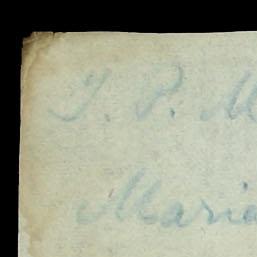 J. P. M
Maria